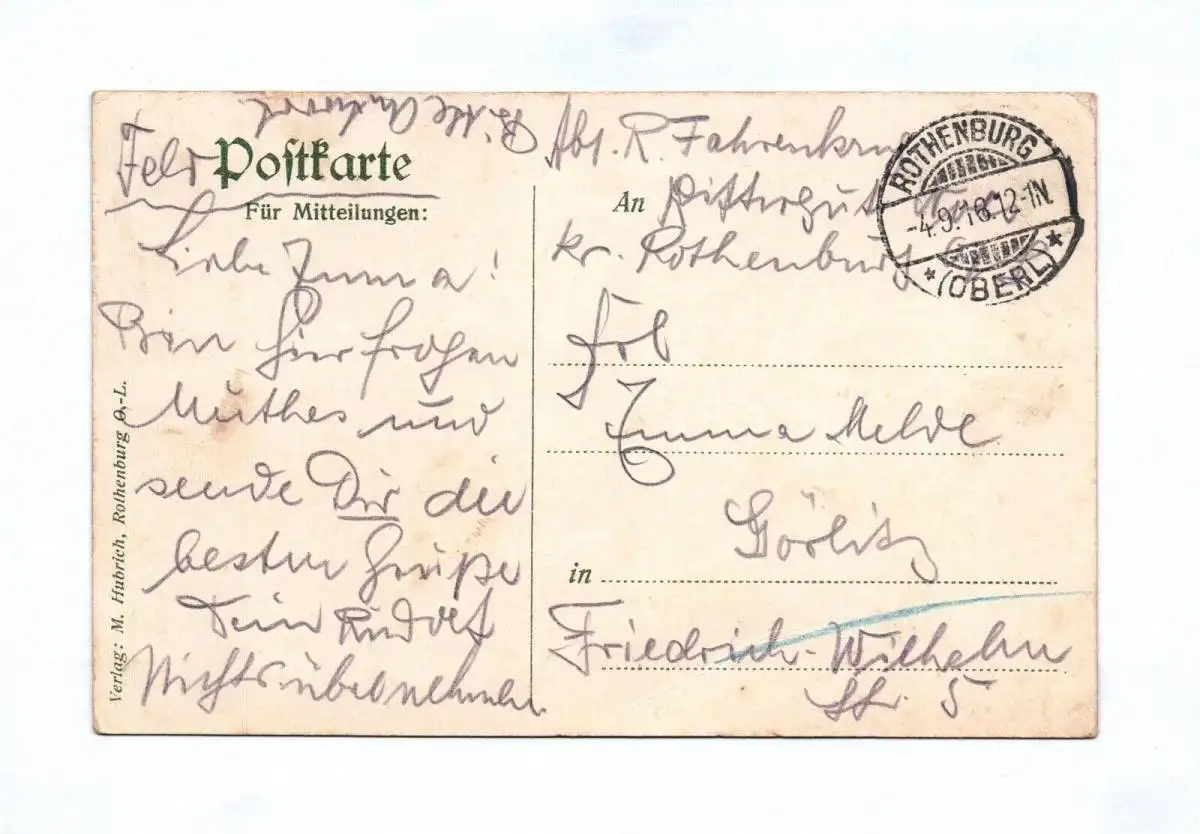 Bitte Antwort.
Feld Postkarte
Für Mitteilungen:
Liebe Emma!
Bin hier frohen
Muthes und
sende Dir die
besten Grüße
Dein Rudolf
Nichts übelnehmen.
Verlag: M. Hubrich, Rothenburg O.-L.
Abs. R. Fahrenkru
An Rittergut
kr. Rothenburg
ROTHENBURG
-4.9.16.12-1N.
* (OBERL) *
Frl
Emma Melde
Görlitz
in
Friedrich-Wilhelm
Str. 5